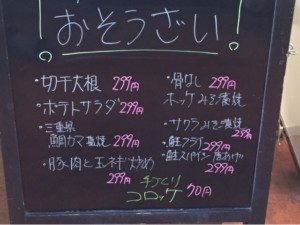 おそうざい
・切干大根 299円
・ポテトサラダ 299円
・三重県
鯛カマ塩焼 299円
・豚肉と玉ネギ炒め
299円
・骨なし 299円
ホッケみそ漬焼
・サワラみそ漬焼
299円
・鮭フライ 299円
・鮭スパイシー唐あげ
299円
手づくり
コロッケ 70円